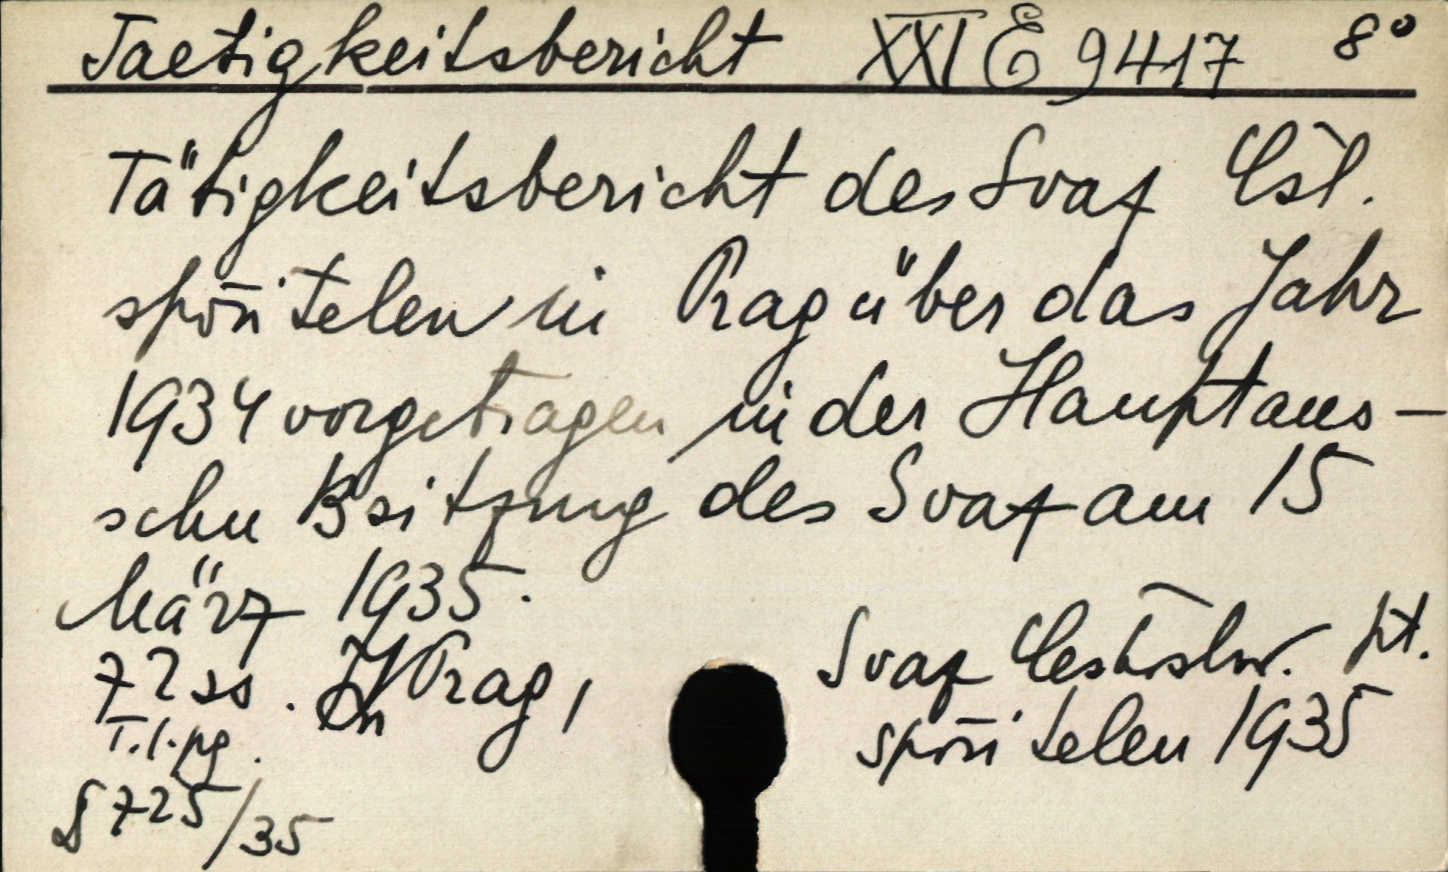 Taetigkeitsbericht XXI E 9417 8°
Tätigkeitsbericht des Svaz Čsl.
spořitelen in Prag über das Jahr
1934 vorgetragen in der Hauptaus-
schu ßsitzung des Svaz am 15
März 1935.
72 ss. In Prag,
Svaz Českoslov. pt.
T.l.pg.
spořitelen 1935
§ 725/35